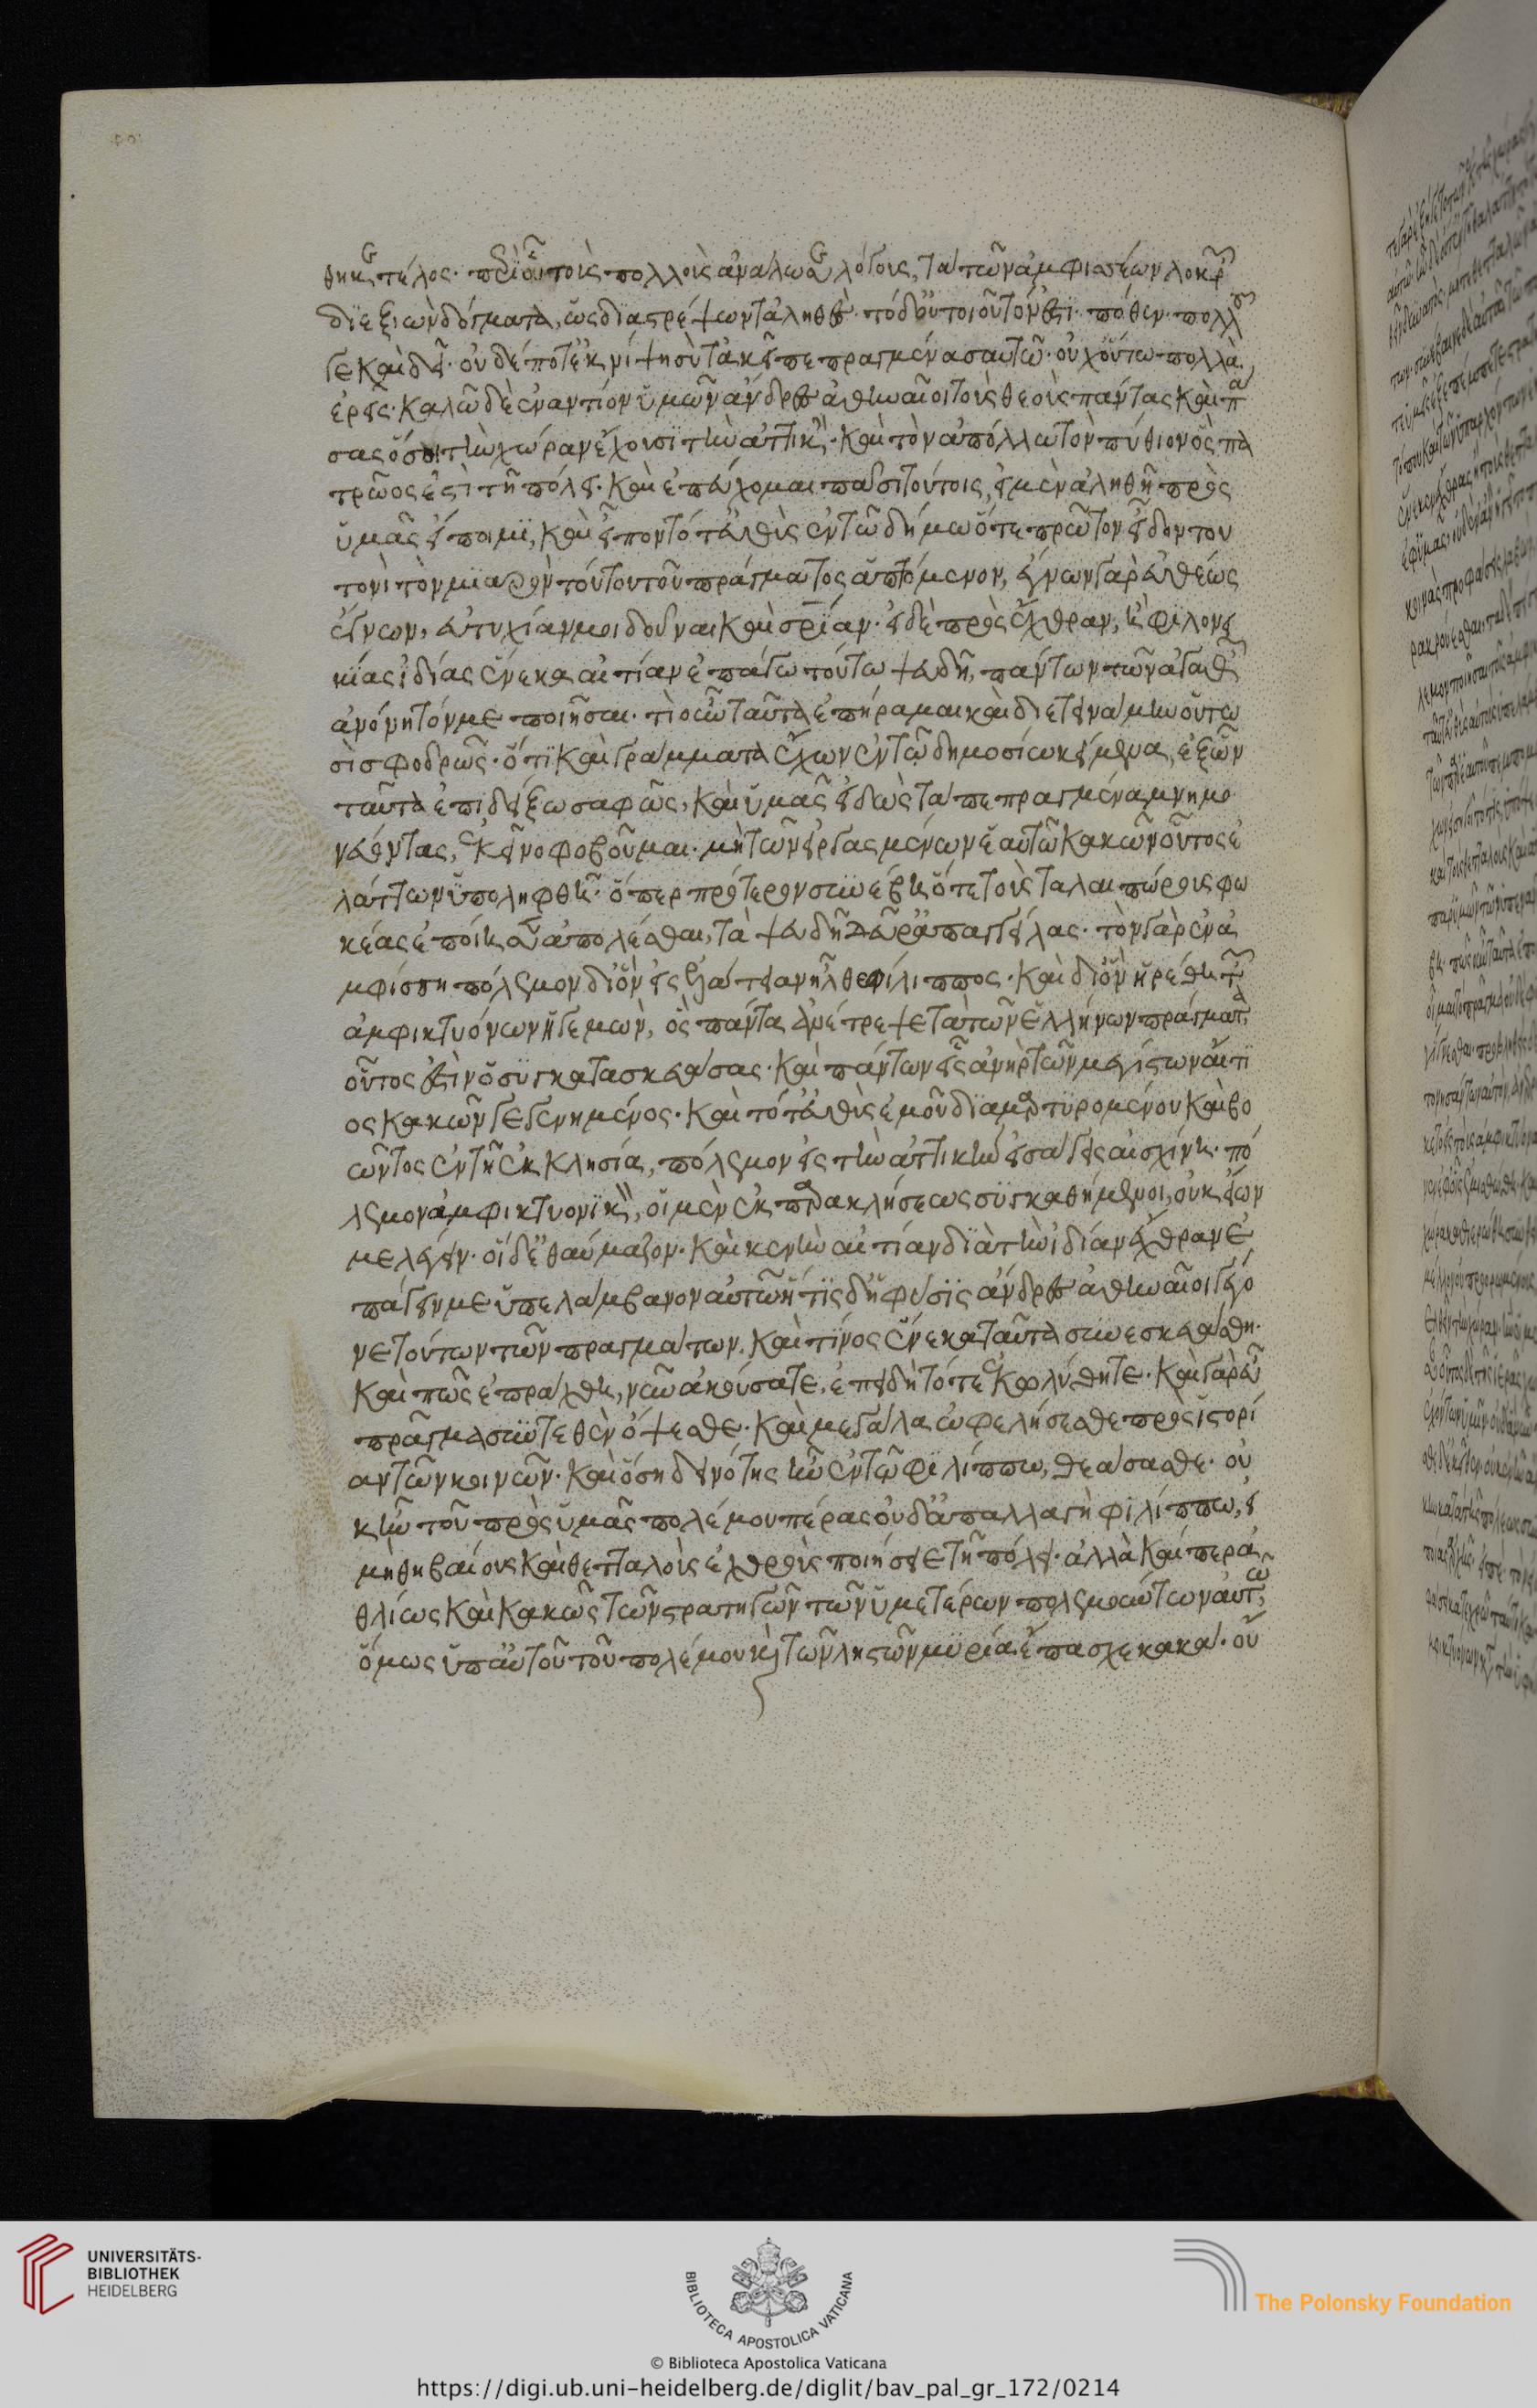 θηκε τέλος· περὶ οὗ τοὺς πολλοὺς ἀνάλωσε λόγους, τὰ τῶν ἀμφισσέων λοκρῶν
διεξιὼν δόγματα, ὡς διαστρέψων τἀληθές· τὸ δ' οὐ τοιοῦτόν ἐστι· πόθεν· πολλοῦ
γε καὶ δεῖ· οὐδέποτ' ἐκνίψῃ σὺ τἀκεῖ πεπραγμένα σαυτῶ· οὐχ οὕτω πολλὰ
ἐρεῖς· καλῶ δὲ ἐναντίον ὑμῶν ἄνδρες ἀθηναῖοι τοὺς θεοὺς πάντας καὶ πά
σας ὅσοι τὴν χώραν ἔχουσι τὴν ἀττικὴν· καὶ τὸν ἀπόλλω τὸν πύθιον ὃς πα
τρῶος ἐστὶ τῆ πόλει· καὶ ἐπεύχομαι πᾶσι τούτοις, εἰ μὲν ἀληθῆ πρὸς
ὑμᾶς εἴποιμι, καὶ εἶπον τότ' εὐθὺς ἐν τῶ δήμω ὅτε πρῶτον εἶδον του
τονὶ τὸν μιαρὸν τούτου τοῦ πράγματος ἁπτόμενον, ἔγνων γὰρ εὐθέως
ἔγνων, εὐτυχίαν μοι δοῦναι καὶ σρίαν· εἰ δὲ πρὸς ἔχθραν, ἢ φιλονει
κίας ἰδίας ἕνεκα αἰτίαν ἐπάγω τούτω ψευδῆ, πάντων τῶν ἀγαθῶν
ἀνόνητόν με ποιῆσαι· τί οὖν ταῦτα ἐπήραμαι καὶ διετεινάμην οὕτω
σὶ σφοδρῶς· ὅτι καὶ γράμματα ἔχων ἐν τῶ δημοσίω κείμενα, ἐξ ὧν
ταῦτα ἐπιδείξω σαφῶς, καὶ ὑμᾶς εἰδὼς τὰ πεπραγμένα μνημο
νεύοντας, ἐκεῖνο φοβοῦμαι· μὴ τῶν εἰργασμένων ἑαυτῶ κακῶν οὗτος ἐ
λάττων ὑποληφθῆ· ὅπερ πρότερον συνέβη ὅτε τοὺς ταλαιπώρους φω
κέας ἐποίησεν ἀπολέσθαι, τὰ ψευδῆ δεῦρ' ἀπαγγείλας· τὸν γὰρ ἐν ἀ
μφίσση πόλεμον δι' ὃν εἰς ἐλάτειαν ἦλθε φίλιππος· καὶ δι' ὃν ἡρέθη τῶν
ἀμφικτυόνων ἡγεμὼν, ὃς πάντα ἀνέτρεψε τὰ τῶν ἑλλήνων πράγματα,
οὗτος ἐστὶν ὁ συγκατασκευάσας· καὶ πάντων εἷς ἀνὴρ τῶν μεγίστων αἴτι
ος κακῶν γεγενημένος· καὶ τότ' εὐθὺς ἐμοῦ διαμαρτυρομένου καὶ βο
ῶντος ἐν τῆ ἐκκλησία, πόλεμον εἰς τὴν ἀττικὴν εἰσάγεις αἰσχίνη· πό
λεμον ἀμφικτυονικὸν, οἱ μὲν ἐκ παρακλήσεως συγκαθήμενοι, οὐκ εἴων
με λέγειν· οἱ δὲ ἐθαύμαζον· καὶ κενὴν αἰτίαν διὰ τὴν ἰδίαν ἔχθραν ἐ
πάγειν με ὑπελάμβανον αὐτῶ ἥτις δὴ φύσις ἄνδρες ἀθηναῖοι γέγο
νε τούτων τῶν πραγμάτων· καὶ τίνος ἕνεκα ταῦτα συνεσκευάσθη·
καὶ πῶς ἐπράχθη, νῦν ἀκούσατε, ἐπειδὴ τότε ἐκωλύθητε· καὶ γὰρ εὖ
πρᾶγμα συντεθὲν ὄψεσθε· καὶ μεγάλα ὠφελήσεσθε πρὸς ἱστορί
αν τῶν κοινῶν· καὶ ὅση δεινότης ἦν ἐν τῶ φιλίππω, θεάσασθε· οὐ
κ ἦν τοῦ πρὸς ὑμᾶς πολέμου πέρας οὐδ' ἀπαλλαγὴ φιλίππω, εἰ
μὴ θηβαίους καὶ θετταλοὺς ἐχθροὺς ποιήσειε τῆ πόλει· ἀλλὰ καίπερ ἀ
θλίως καὶ κακῶς τῶν στρατηγῶν τῶν ὑμετέρων πολεμούντων αὐτῶ,
ὅμως ὑπ' αὐτοῦ τοῦ πολέμου καὶ τῶν ληστῶν μυρία ἔπασχε κακά· οὔ
UNIVERSITÄTS-
BIBLIOTHEK
HEIDELBERG
BIBLIOTECA APOSTOLICA VATICANA
The Polonsky Foundation
© Biblioteca Apostolica Vaticana
https://digi.ub.uni-heidelberg.de/diglit/bav_pal_gr_172/0214